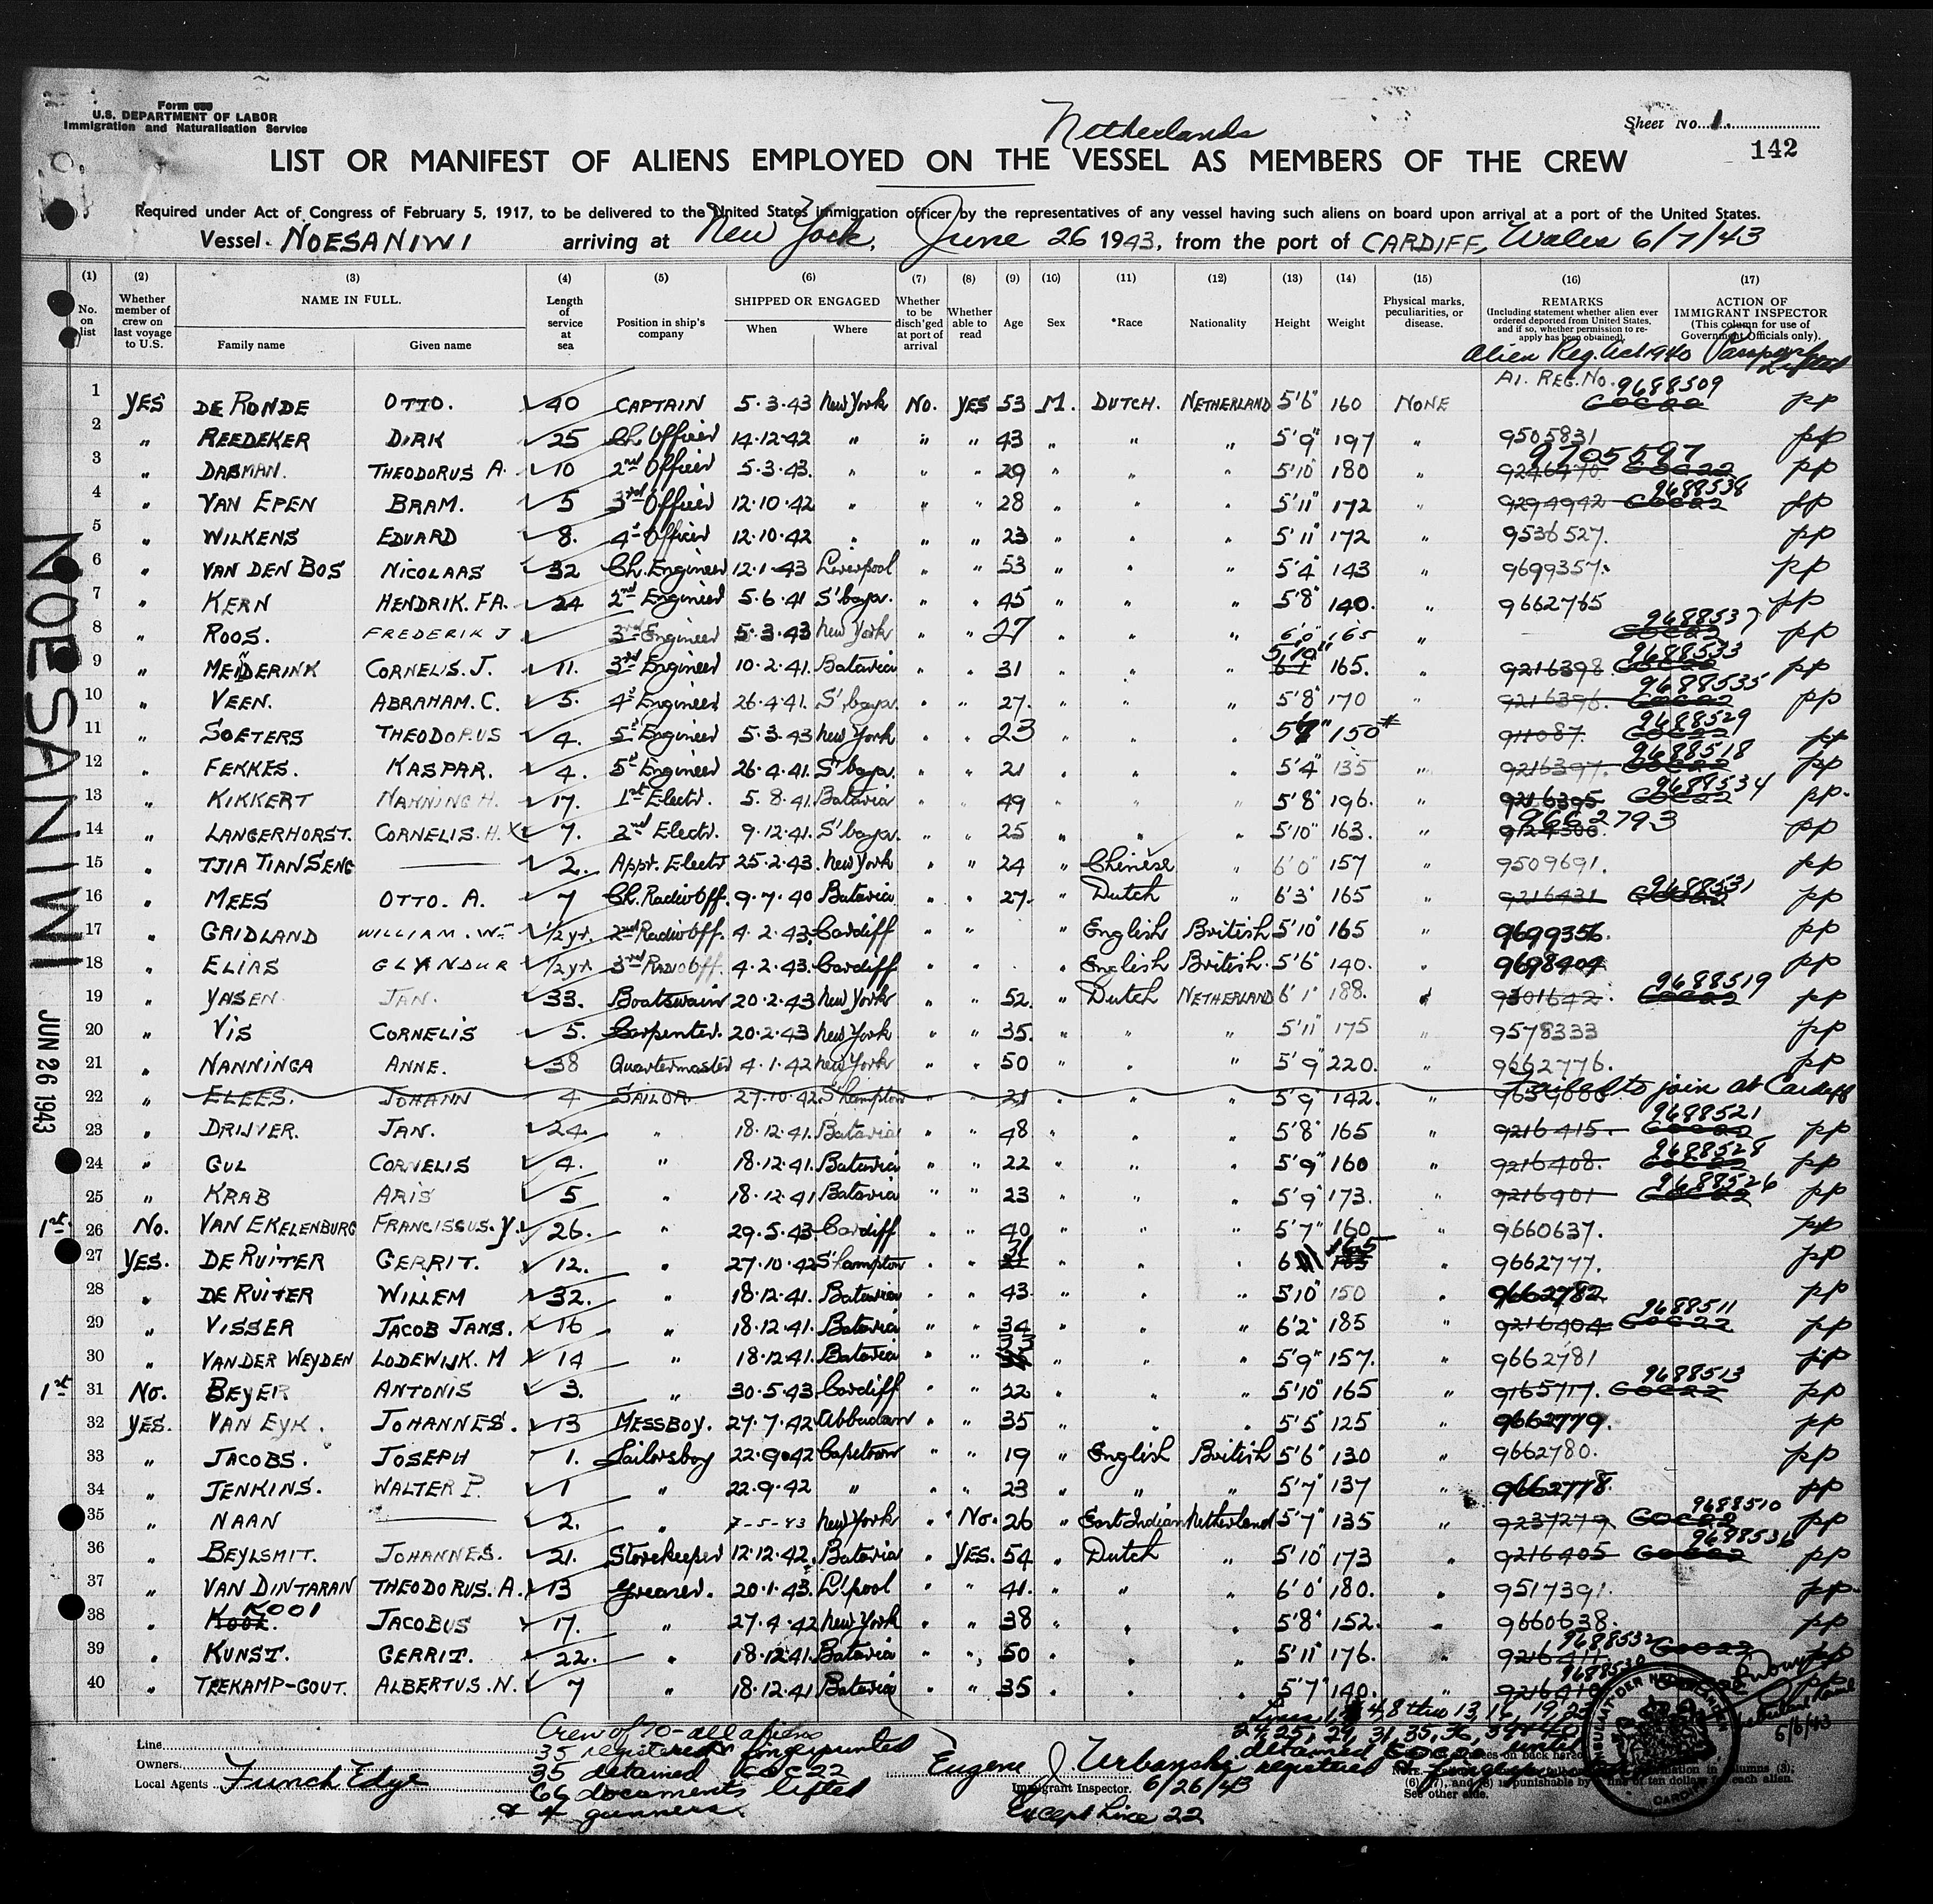 Form 680
U.S. DEPARTMENT OF LABOR
Immigration and Naturalisation Service
Netherlands
Sheet No. 1.
142
LIST OR MANIFEST OF ALIENS EMPLOYED ON THE VESSEL AS MEMBERS OF THE CREW
Required under Act of Congress of February 5, 1917, to be delivered to the United States immigration officer by the representatives of any vessel having such aliens on board upon arrival at a port of the United States.
Vessel. NOESANIWI arriving at New York, June 26 1943, from the port of CARDIFF, Wales 6/7/43
(1) (2) (3) (4) (5) (6) (7) (8) (9) (10) (11) (12) (13) (14) (15) (16) (17)
No. on list
Whether member of crew on last voyage to U.S.
NAME IN FULL.
Family name Given name
Length of service at sea
Position in ship's company
SHIPPED OR ENGAGED
When Where
Whether to be disch'ged at port of arrival
Whether able to read
Age Sex *Race Nationality Height Weight
Physical marks, peculiarities, or disease.
REMARKS
(Including statement whether alien ever ordered deported from United States, and if so, whether permission to re-apply has been obtained).
ACTION OF IMMIGRANT INSPECTOR
(This column for use of Government Officials only).
Alien Reg. Act 1940 Passports Lifted
Al. REG. No. 9688509
1 YES DE RONDE OTTO. 40 CAPTAIN 5.3.43 New York No. YES 53 M. DUTCH. NETHERLAND 5'6" 160 NONE COC22 pp
2 " REEDEKER DIRK 25 Ch. Officer 14.12.42 " " " 43 " " " 5'9" 197 " 9505831 pp
3 " DABMAN. THEODORUS A. 10 2nd Officer 5.3.43. " " " 29 " " " 5'10" 180 " 9246470 COC22 9705597 pp
4 " VAN EPEN BRAM. 5 3rd Officer 12.10.42 " " " 28 " " " 5'11" 172 " 9294942 COC22 9688538 pp
5 " WILKENS EDUARD 8. 4th Officer 12.10.42 " " " 23 " " " 5'11" 172 " 9536527. pp
6 " VAN DEN BOS NICOLAAS 32 Ch. Engineer 12.1.43 Liverpool " " 53 " " " 5'4" 143 " 9699357. pp
7 " KERN HENDRIK. FA. 24 2nd Engineer 5.6.41 S'baya. " " 45 " " " 5'8" 140. " 9662765 pp
8 " ROOS. FREDERIK J 3rd Engineer 5.3.43 New York " " 27 " " " 6'0" 165 " COC22 9688537 pp
9 " MEIDERINK CORNELIS. J. 11. 3rd Engineer 10.2.41. Batavia " " 31 " " " 5'10" 165. " 9216398 COC22 9688533 pp
10 " VEEN. ABRAHAM. C. 5. 4th Engineer 26.4.41. S'baya. " " 27. " " " 5'8" 170 " 9216396. COC22 9688535 pp
11 " SOETERS THEODORUS 4. 5th Engineer 5.3.43 New York " " 23 " " " 150# 911087. COC22 9688529 pp
12 " FEKKES. KASPAR. 4. 5th Engineer 26.4.41. S'baya. " " 21 " " " 5'4" 135 " 9216397. COC22 9688518 pp
13 " KIKKERT NANNING H. 17. 1st Electr. 5.8.41. Batavia " " 49 " " " 5'8" 196. " 9216395 COC22 9688534 pp.
14 " LANGERHORST. CORNELIS. H. 7. 2nd Electr. 9.12.41. S'baya " " 25 " " " 5'10" 163. " 9662793 pp
15 " TJIA TIAN SENG 2. Appr. Electr 25.2.43. New York " " 24 " Chinese " 6'0" 157 " 9509691. pp
16 " MEES OTTO. A. 7 Ch. Radio Off. 9.7.40 Batavia " " 27. " Dutch " 6'3" 165 " 9216431 COC22 9688531 pp
17 " GRIDLAND WILLIAM. W. 1/2 yr. 2nd Radio Off. 4.2.43. Cardiff " " " English British 5'10" 165 " 9699356. pp
18 " ELIAS GLYNDUR 1/2 yr. 3rd Radio Off. 4.2.43. Cardiff " " English British. 5'6" 140. " 9698404 pp
19 " YASEN JAN. 33. Boatswain 20.2.43 New York " " 52. " Dutch NETHERLAND 6'1" 188. " 9301642. COC22 9688519 pp
20 " VIS CORNELIS 5. Carpenter. 20.2.43 New York " " 35. " " " 5'11" 175 " 9578333 pp
21 " NANNINGA ANNE. 38 Quartermaster 4.1.42 New York " " 50 " " " 5'9" 220. " 9662776. pp
22 " ELEES. JOHANN 4 SAILOR. 27.10.42 S'hampton " " 21 " " " 5'9" 142. " Failed to join at Cardiff
23 " DRIJVER. JAN. 24. " 18.12.41. Batavia " " 48 " " " 5'8" 165 " 9216415. COC22 9688521 pp
24 " GUL CORNELIS 4. " 18.12.41. Batavia " " 22 " " " 5'9" 160 " 9216408. COC22 9688528 pp
25 " KRAB ARIS 5 " 18.12.41 Batavia " " 23 " " " 5'9" 173. " 9216401 COC22 9688526 pp
1st 26 No. VAN EKELENBURG FRANCISSUS. Y. 26. " 29.5.43 Cardiff " " 40 " " " 5'7" 160 " 9660637. pp
27 YES. DE RUITER GERRIT. 12. " 27.10.42 S'hampton " " 31 " " " 165 " 9662777. pp
28 " DE RUITER WILLEM 32. " 18.12.41. Batavia " " 43 " " " 5'10" 150 " 9662782 pp
29 " VISSER JACOB JANS. 16 " 18.12.41. Batavia " " 34 " " " 6'2" 185 " 9216404 COC22 9688511 pp
30 " VAN DER WEYDEN LODEWIJK. M 14 " 18.12.41. Batavia " " 33 " " " 5'9" 157. " 9662781 pp
1st 31 No. BEYER ANTONIS 3. " 30.5.43 Cardiff " " 22 " " " 5'10" 165 " 9165717. COC22 9688513 pp
32 YES. VAN EYK. JOHANNES. 13 MESSBOY. 27.7.42 Abbadan " " 35 " " " 5'5" 125 " 9662779. pp
33 " JACOBS. JOSEPH 1. Sailorsboy 22.9.42 Capetown " " 19 " English British 5'6" 130 " 9662780. pp
34 " JENKINS. WALTER P. 1 " 22.9.42 " " " 23 " " " 5'7" 137 " 9662778. pp
35 " NAAN 2. " 7-5-43 New York " No. 26 " East Indian Netherland 5'7" 135 " 9237279 COC22 9688510 pp
36 " BEYLSMIT. JOHANNES. 21. Storekeeper 12.12.42. Batavia " YES. 54 " Dutch " 5'10" 173 " 9216405 COC22 9688536 pp
37 " VAN DINTARAN THEODORUS. A. 13 Greaser. 20.1.43. L'pool " " 41. " " " 6'0" 180. " 9517391. pp.
38 " KOOI JACOBUS 17. " 27.4.42 New York " " 38 " " " 5'8" 152. " 9660638. pp
39 " KUNST. GERRIT. 22. " 18.12.41. Batavia " " 50 " " " 5'11" 176. " 9216411. COC22 9688532 pp
40 " TEEKAMP-GOUT. ALBERTUS. N. 7 " 18.12.41 Batavia " " 35 " " " 5'7" 140. " 9688530
NOESANIWI
JUN 26 1943
Line
Owners
Local Agents Funch Edye
Crew of 70 - all aliens
35 registered & fingerprinted
35 detained COC 22
66 documents lifted
& 4 gunners
Eugene J. Urbansky
Immigrant Inspector. 6/26/43
Except Line 22
48 thru 13, 16, 19, 23
24, 25, 29, 31, 35, 36, 39 & 40
detained until
registered & fingerprinted
(6) (7), and (8) is punishable by a fine of ten dollars for each alien.
See other side.
6/6/43